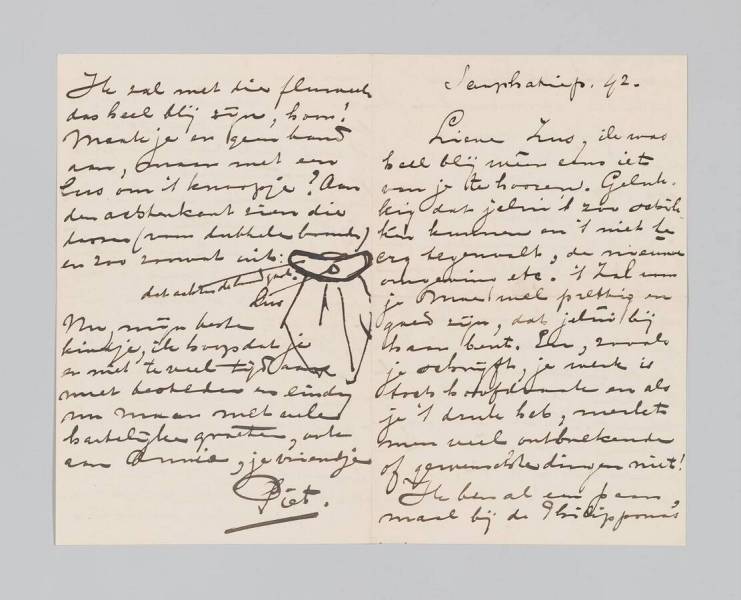 Sarphatisp. 42.
Lieve Zus, ik was
heel blij weer eens iets
van je te hooren. Geluk-
kig dat jelui 't zoo schik-
ken kunnen en 't niet te
erg tegenvalt, de nieuwe
omgeving etc. 't Zal voor
je Moe wel prettig en
goed zijn, dat jelui bij
haar bent. En, zooals
je schrijft, je werk is
toch hoofdzaak en als
je 't druk heb, merkt
men veel ontbrekende
of gewenschte dingen niet!
Ik ben al een paar
maal bij de Philippona's
Ik zal met die fluweele
das heel blij zijn, hoor!
Maak je er geen band
aan, maar met een
lus om 't knoopje? Aan
den achterkant zien die
dassen (van dubbele breedte)
er zoo zoowat uit:
dat achter de band gaat.
lus
Nu, mijn beste
kindje, ik hoop dat je
er niet te veel tijd aan
moet besteden en eindig
nu maar met vele
hartelijke groeten, ook
aan Annie, je vriendje
Piet.